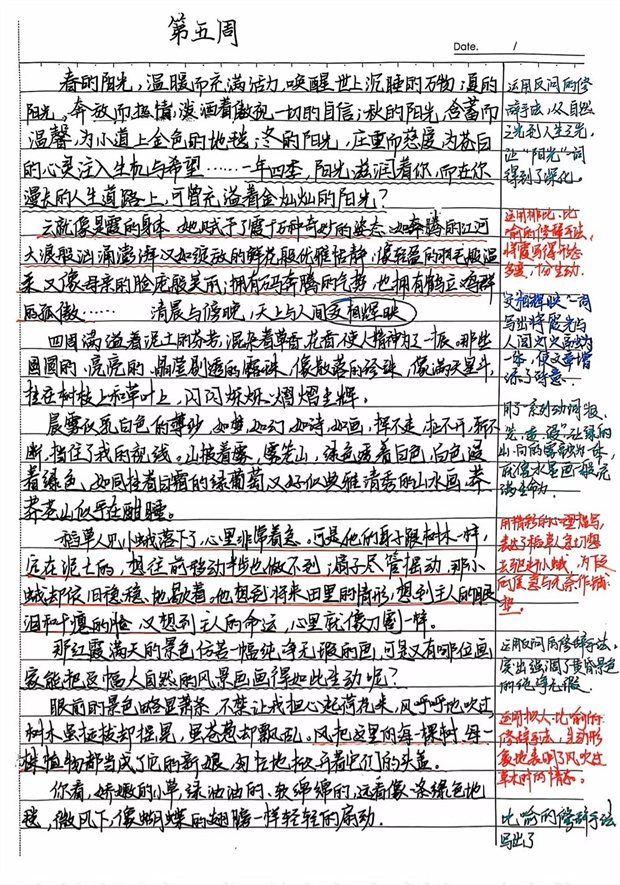 第五周
Date. /
春的阳光，温暖而充满活力，唤醒世上沉睡的万物；夏的
阳光，奔放而热情，泼洒着傲视一切的自信；秋的阳光，含蓄而
温馨，为小道上金色的地毯；冬的阳光，庄重而慈爱为苍白
的心灵注入生机与希望……一年四季，阳光滋润着你，而在你
漫长的人生道路上，可曾充溢着金灿灿的阳光？
运用反问的修
辞手法，从自然
之光到人生之光，
让“阳光”一词
得到了深化。
云就像是霞的身体，她赋予了霞千万种奇妙的姿态，如奔腾的江河
大浪般汹涌澎湃又如绽放的鲜花般优雅恬静，像轻盈的羽毛般温
柔又像母亲的脸庞般美丽；拥有万马奔腾的气势，也拥有鹤立鸡群
的孤傲…… 清晨与傍晚，天上与人间交相辉映
运用排比、比
喻的修辞手法，
将霞写得形态
多变，十分生动.
交相辉映一词
写出将霞光与
四周满溢着泥土的芬芳，混杂着草香，花香，使人精神为之一振。那些
圆圆的、亮亮的、晶莹剔透的露珠，像散落的珍珠，像满天星斗，
挂在树枝上和草叶上，闪闪烁烁、熠熠生辉。
晨雾似乳白色的薄纱，如梦、如幻、如诗、如画，挥不走，扯不开，斩不
断，挡住了我的视线。山披着雾，雾笼山，绿色透着白色，白色浸
着绿色，如同挂着白霜的绿葡萄又好似典雅清秀的山水画，莽
莽苍山似乎在酣睡。
用了一系列动词“披、
笼、透、浸”让绿的
就像水墨画一般充
满生命力.
稻草人见小蛾落下了，心里非常着急。可是他的身子跟树木一样，
定在泥土的，想往前移动半步也做不到；扇子尽管扇动，那小
蛾却依旧稳稳地歇着。他想到将来田里的情形，想到主人的眼
泪和干瘪的脸，又想到主人的命运，心里就像刀割一样。
用精彩的心理描写，
表达了稻草人急切想
那红霞满天的景色仿若一幅纯净无瑕的画，可是又有哪位画
家能把这幅大自然的风景画画得如此生动呢？
运用反问的修辞手法，
突出强调了黄昏景色
的纯净无瑕.
眼前的景色略显萧条，不禁让我担心起荷花来，风呼呼地吹过
树木虽挺拔却摇晃，虽苍葱却飘乱。风把这里的每一棵树、每一
株植物都当成了它的新娘，匆匆地掀开着它们的头盖。
运用拟人、比喻的
修辞手法，生动形
象地表明了风吹过
草木时的情态。
你看，娇嫩的小草绿油油的、软绵绵的，远看像一条绿色地
毯，微风下，像蝴蝶的翅膀一样轻轻的扇动.
比喻的修辞手法
写出了